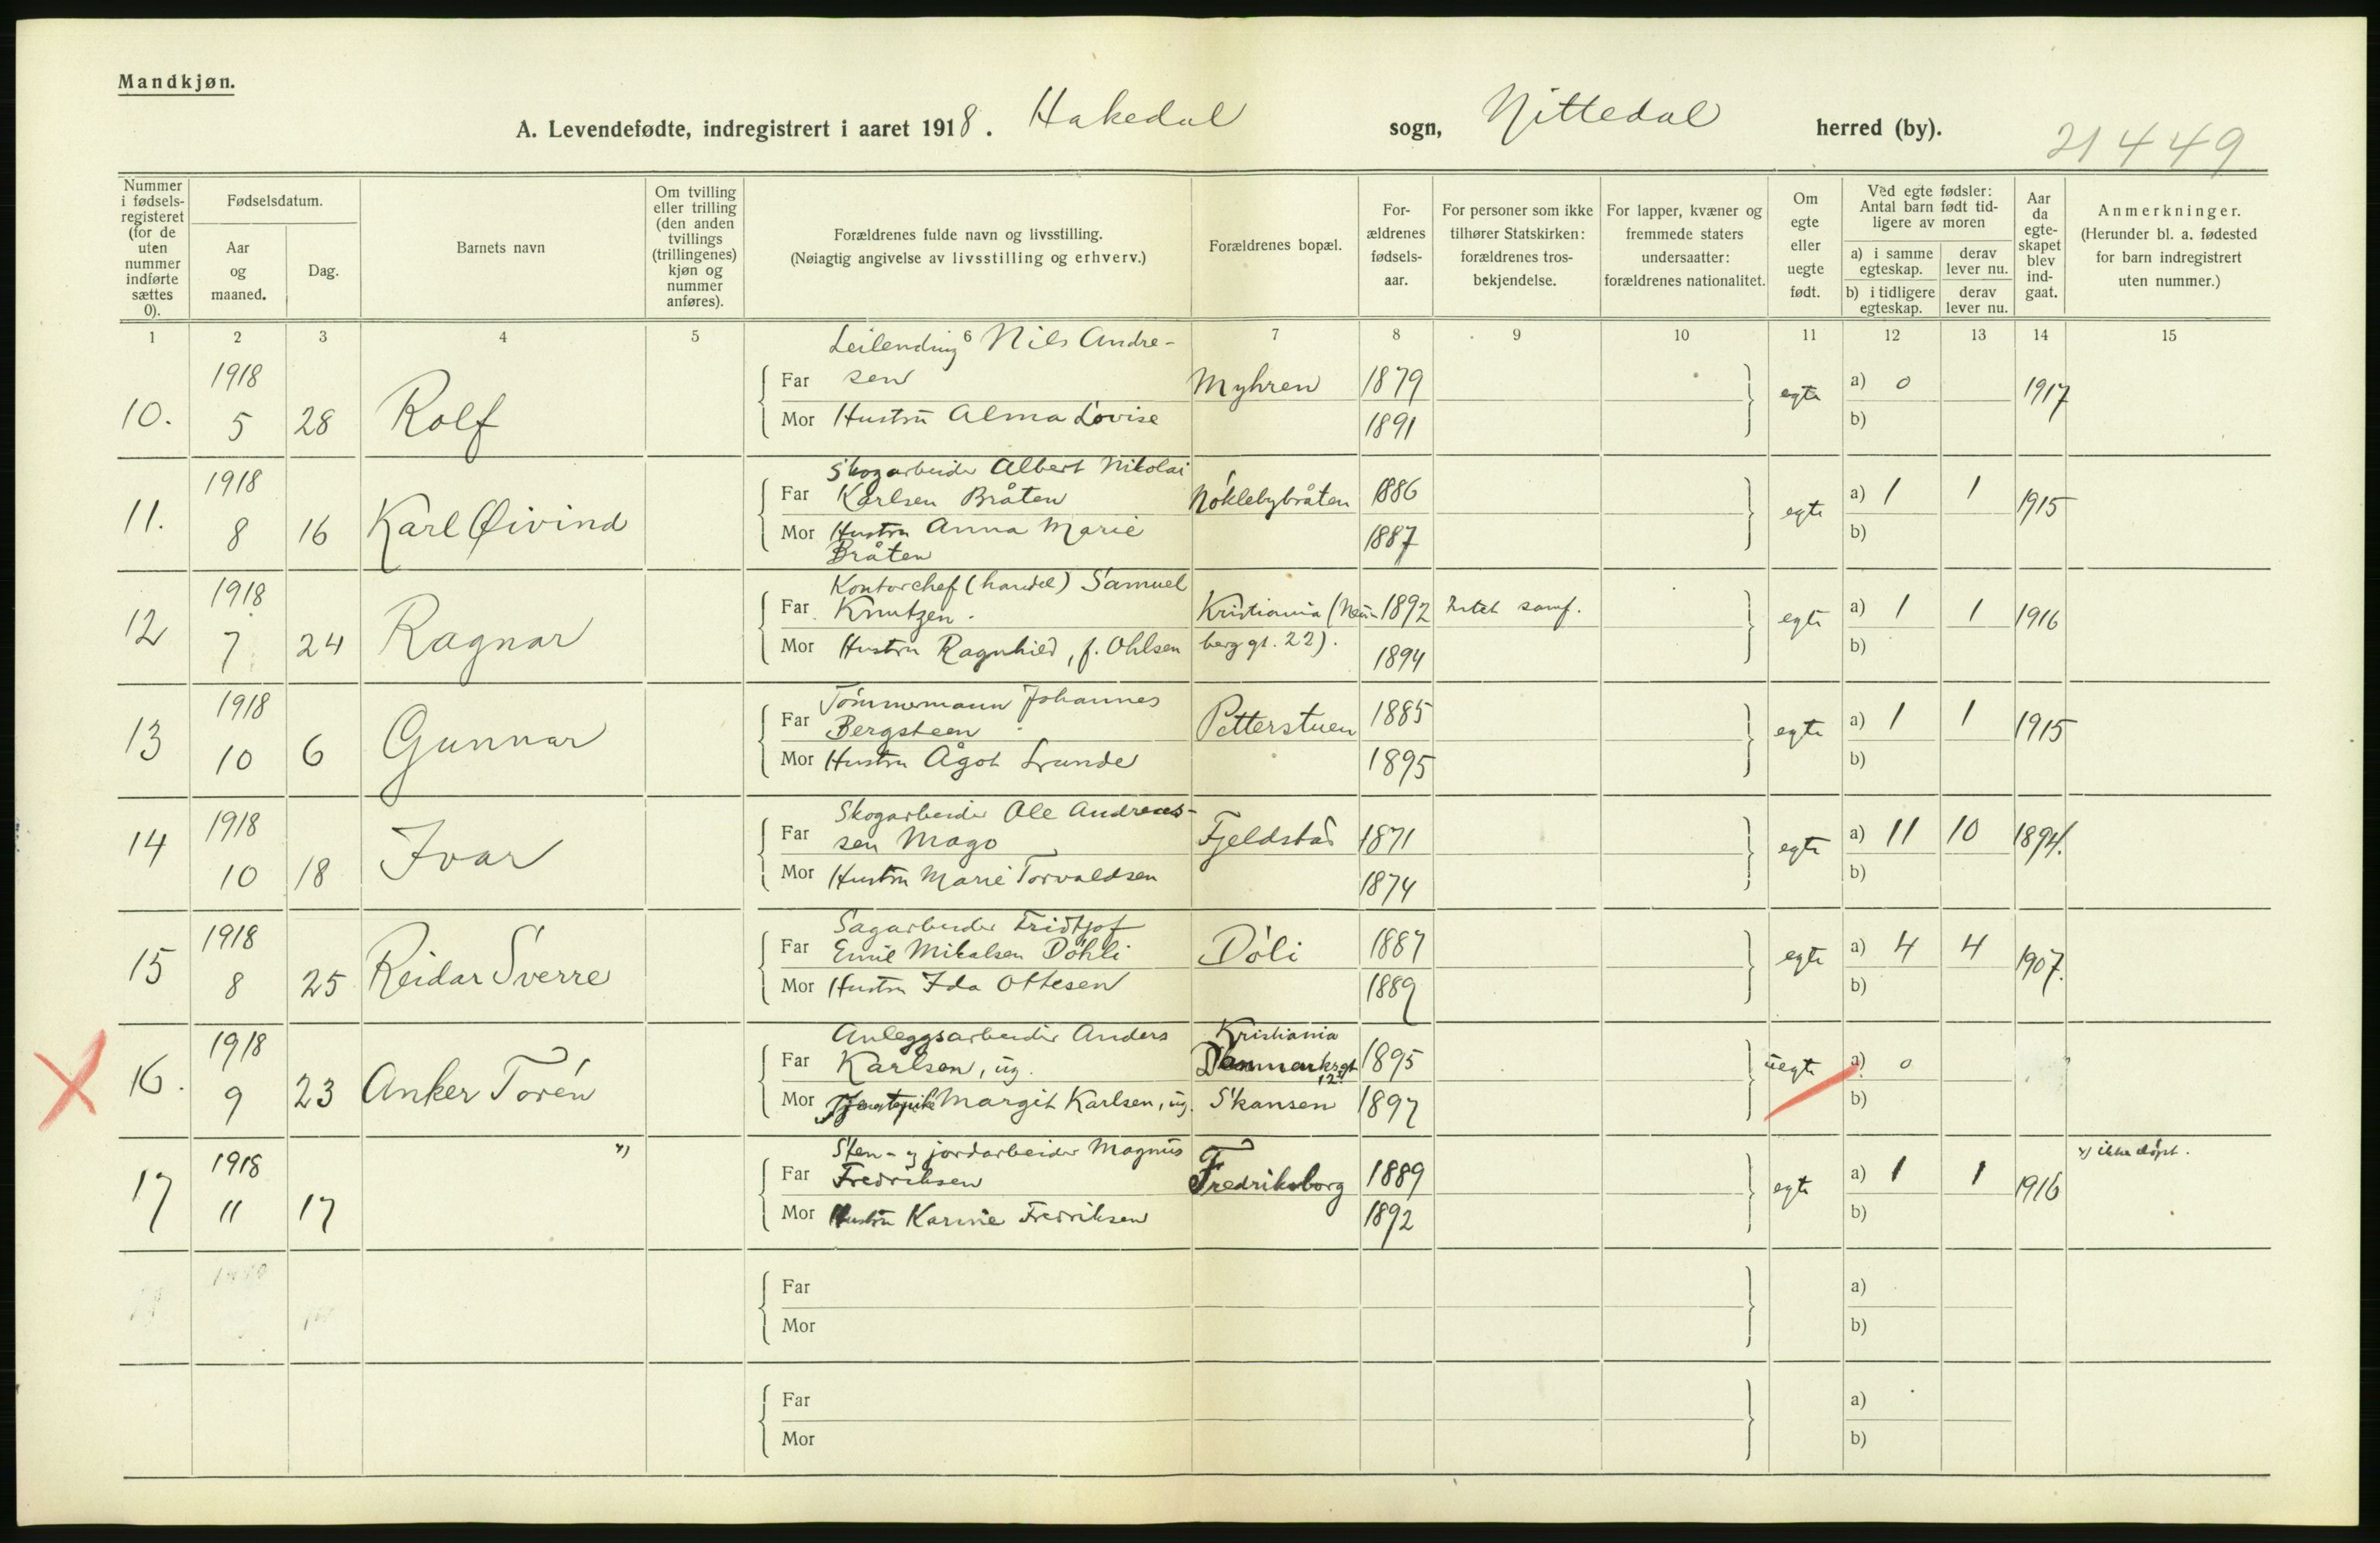 Mandkjøn.
A. Levendefødte, indregistrert i aaret 1918. Hakedal sogn, Nittedal herred (by).
21449
Nummer i fødselsregisteret (for de uten nummer indførte sættes 0).
Fødselsdatum.
Aar og maaned.
Dag.
Barnets navn
Om tvilling eller trilling (den anden tvillings (trillingenes) kjøn og nummer anføres).
Forældrenes fulde navn og livsstilling.
(Nøiagtig angivelse av livsstilling og erhverv.)
Forældrenes bopæl.
Forældrenes fødselsaar.
For personer som ikke tilhører Statskirken: forældrenes trosbekjendelse.
For lapper, kvæner og fremmede staters undersaatter: forældrenes nationalitet.
Om egte eller uegte født.
Ved egte fødsler: Antal barn født tidligere av moren
a) i samme egteskap.
derav lever nu.
b) i tidligere egteskap.
derav lever nu.
Aar da egteskapet blev indgaat.
Anmerkninger.
(Herunder bl. a. fødested for barn indregistrert uten nummer.)
1 2 3 4 5 6 7 8 9 10 11 12 13 14 15
10. 1918 5 28 Rolf
Leilending Nils Andre-
Far sen Myhren 1879 egte a) 0 1917
Mor Hustru Alma Lovise 1891 b)
11. 1918 8 16 Karl Øivind
Skogarbeider Albert Nikolai
Far Karlsen Bråten Nöklebybråten 1886 egte a) 1 1 1915
Mor Hustru Anna Marie 1887 b)
Bråten
12 1918 7 24 Ragnar
Kontorchef (handel) Samuel
Far Knutzen. Kristiania 1892 samf. egte a) 1 1 1916
Mor Hustru Ragnhild, f. Ohlsen berg gt. 22). 1894 b)
13 1918 10 6 Gunnar
Tömmermann Johannes
Far Bergsteen Petterstuen 1885 egte a) 1 1 1915
Mor Hustru Ågot Lunde 1895 b)
14 1918 10 18 Ivar
Skogarbeider Ole Andreas-
Far sen Mago Fjeldstad 1871 egte a) 11 10 1894.
Mor Hustru Marie Torvaldsen 1874 b)
15 1918 8 25 Reidar Sverre
Sagarbeider Fridtjof
Far Emil Mikalsen Döhli Döli 1887 egte a) 4 4 1907.
Mor Hustru Ida Ottesen 1889 b)
16. 1918 9 23 Anker Torén
Anleggsarbeider Anders Kristiania
Far Karlsen, ug. Danmarksgt 12 1895 uegte a) 0
Mor Tjenestepike Margit Karlsen, ug. Skansen 1897 b)
17 1918 11 17 x)
Sten- og jordarbeider Magnus x) ikke döpt.
Far Fredriksen Fredriksborg 1889 egte a) 1 1 1916
Mor Hustru Karine Fredriksen 1892 b)
Far a)
Mor b)
Far a)
Mor b)